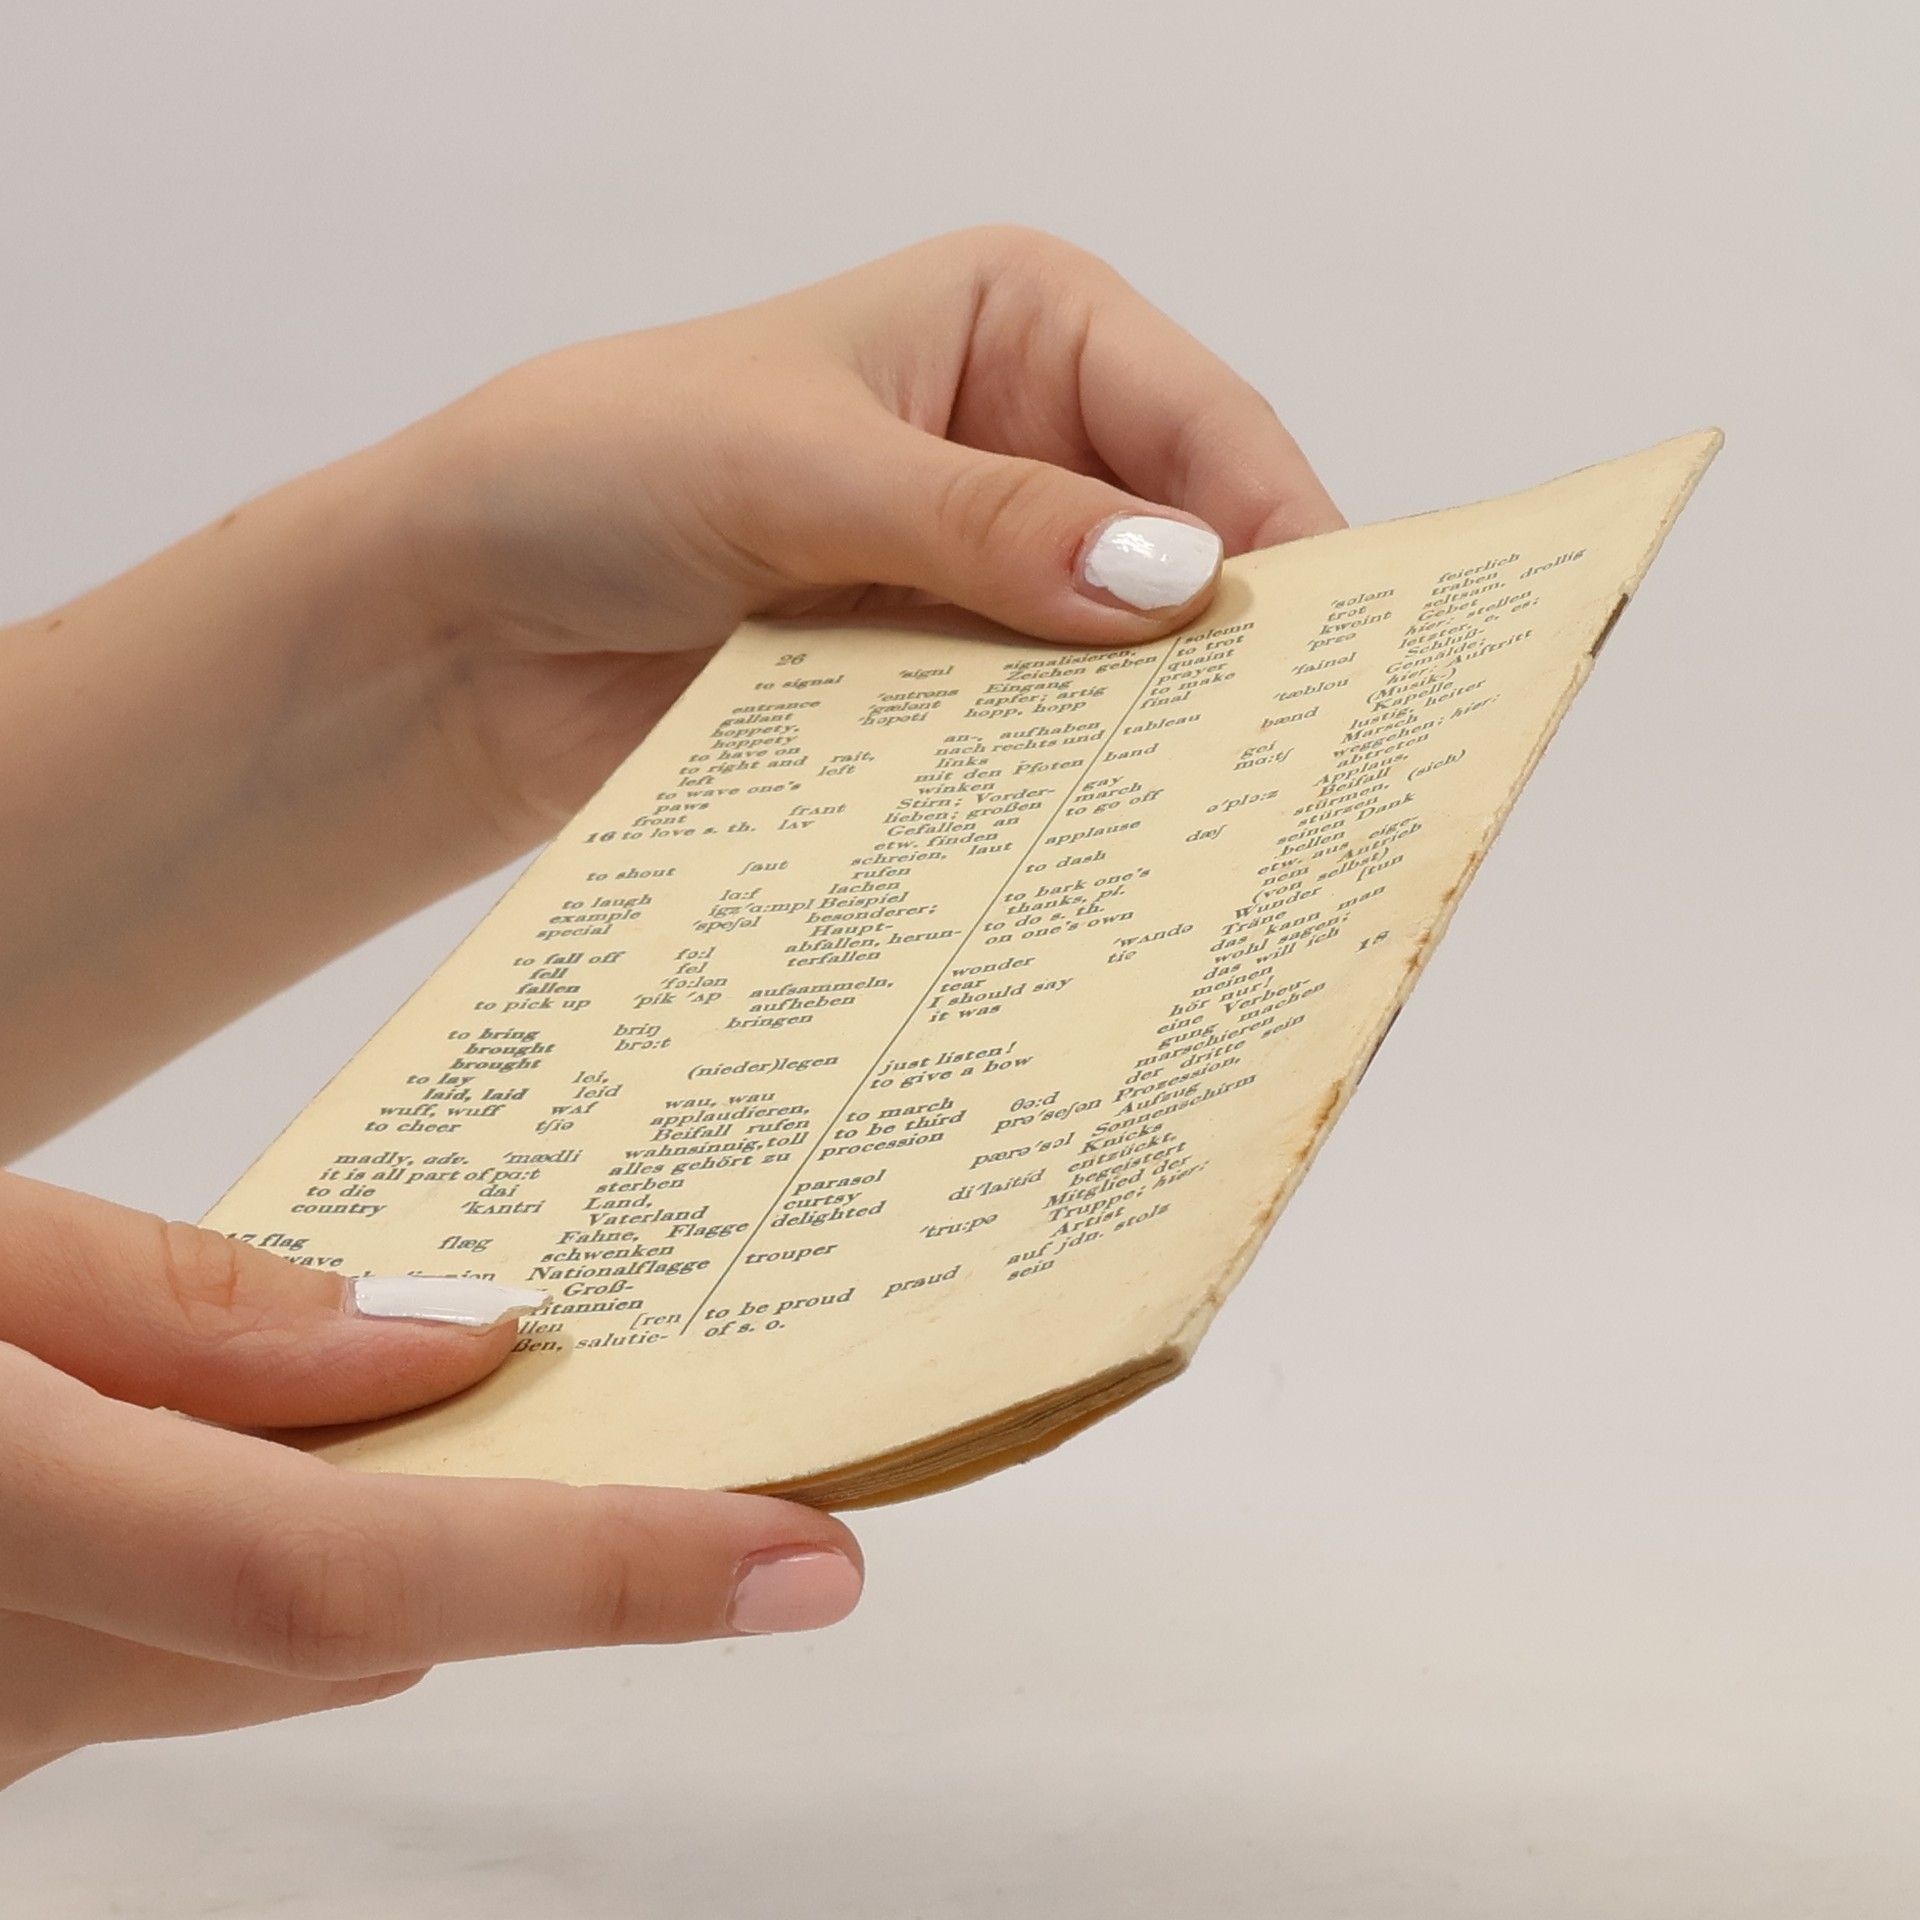 26
to signal 'signl signalisieren,
Zeichen geben
entrance 'entrəns Eingang
gallant 'gælənt tapfer; artig
hoppety, 'həpəti hopp, hopp
hoppety
to have on an-, aufhaben
to right and rait, nach rechts und
left left links
to wave one's mit den Pfoten
paws winken
front frʌnt Stirn; Vorder-
16 to love s. th. lʌv lieben; großen
Gefallen an
etw. finden
to shout ʃaut schreien, laut
rufen
to laugh lɑ:f lachen
example igz'ɑ:mpl Beispiel
special 'speʃəl besonderer;
Haupt-
to fall off fɔ:l abfallen, herun-
fell fel terfallen
fallen 'fɔ:lən
to pick up 'pik 'ʌp aufsammeln,
aufheben
to bring briŋ bringen
brought brɔ:t
brought
to lay lei, (nieder)legen
laid, laid leid
wuff, wuff wʌf wau, wau
to cheer tʃiə applaudieren,
Beifall rufen
madly, adv. 'mædli wahnsinnig, toll
it is all part of pɑ:t alles gehört zu
to die dai sterben
country 'kʌntri Land,
Vaterland
17 flag flæg Fahne, Flagge
wave schwenken
Nationalflagge
Groß-
ritannien
llen [ren
ßen, salutie-
solemn 'sɔləm feierlich
to trot trɔt traben
quaint kweint seltsam, drollig
prayer 'prɛə Gebet
to make hier: stellen
final 'fainəl letzter, e, es;
Schluß-
tableau 'tæblou Gemälde;
hier: Auftritt
band bænd (Musik-)
Kapelle
gay gei lustig, heiter
march mɑ:tʃ Marsch
to go off weggehen; hier:
abtreten
applause ə'plɔ:z Applaus,
Beifall
to dash dæʃ stürmen, (sich)
stürzen
to bark one's seinen Dank
thanks, pl. bellen
to do s. th. etw. aus eige-
on one's own nem Antrieb
(von selbst)
wonder 'wʌndə Wunder [tun
tear tiə Träne
I should say das kann man
it was wohl sagen;
das will ich
meinen 18
just listen! hör nur!
to give a bow eine Verbeu-
gung machen
to march marschieren
to be third θə:d der dritte sein
procession prə'seʃən Prozession,
Aufzug
parasol pærə'sɔl Sonnenschirm
curtsy Knicks
delighted di'laitid entzückt,
begeistert
trouper 'tru:pə Mitglied der
Truppe; hier:
Artist
to be proud praud auf jdn. stolz
of s. o. sein